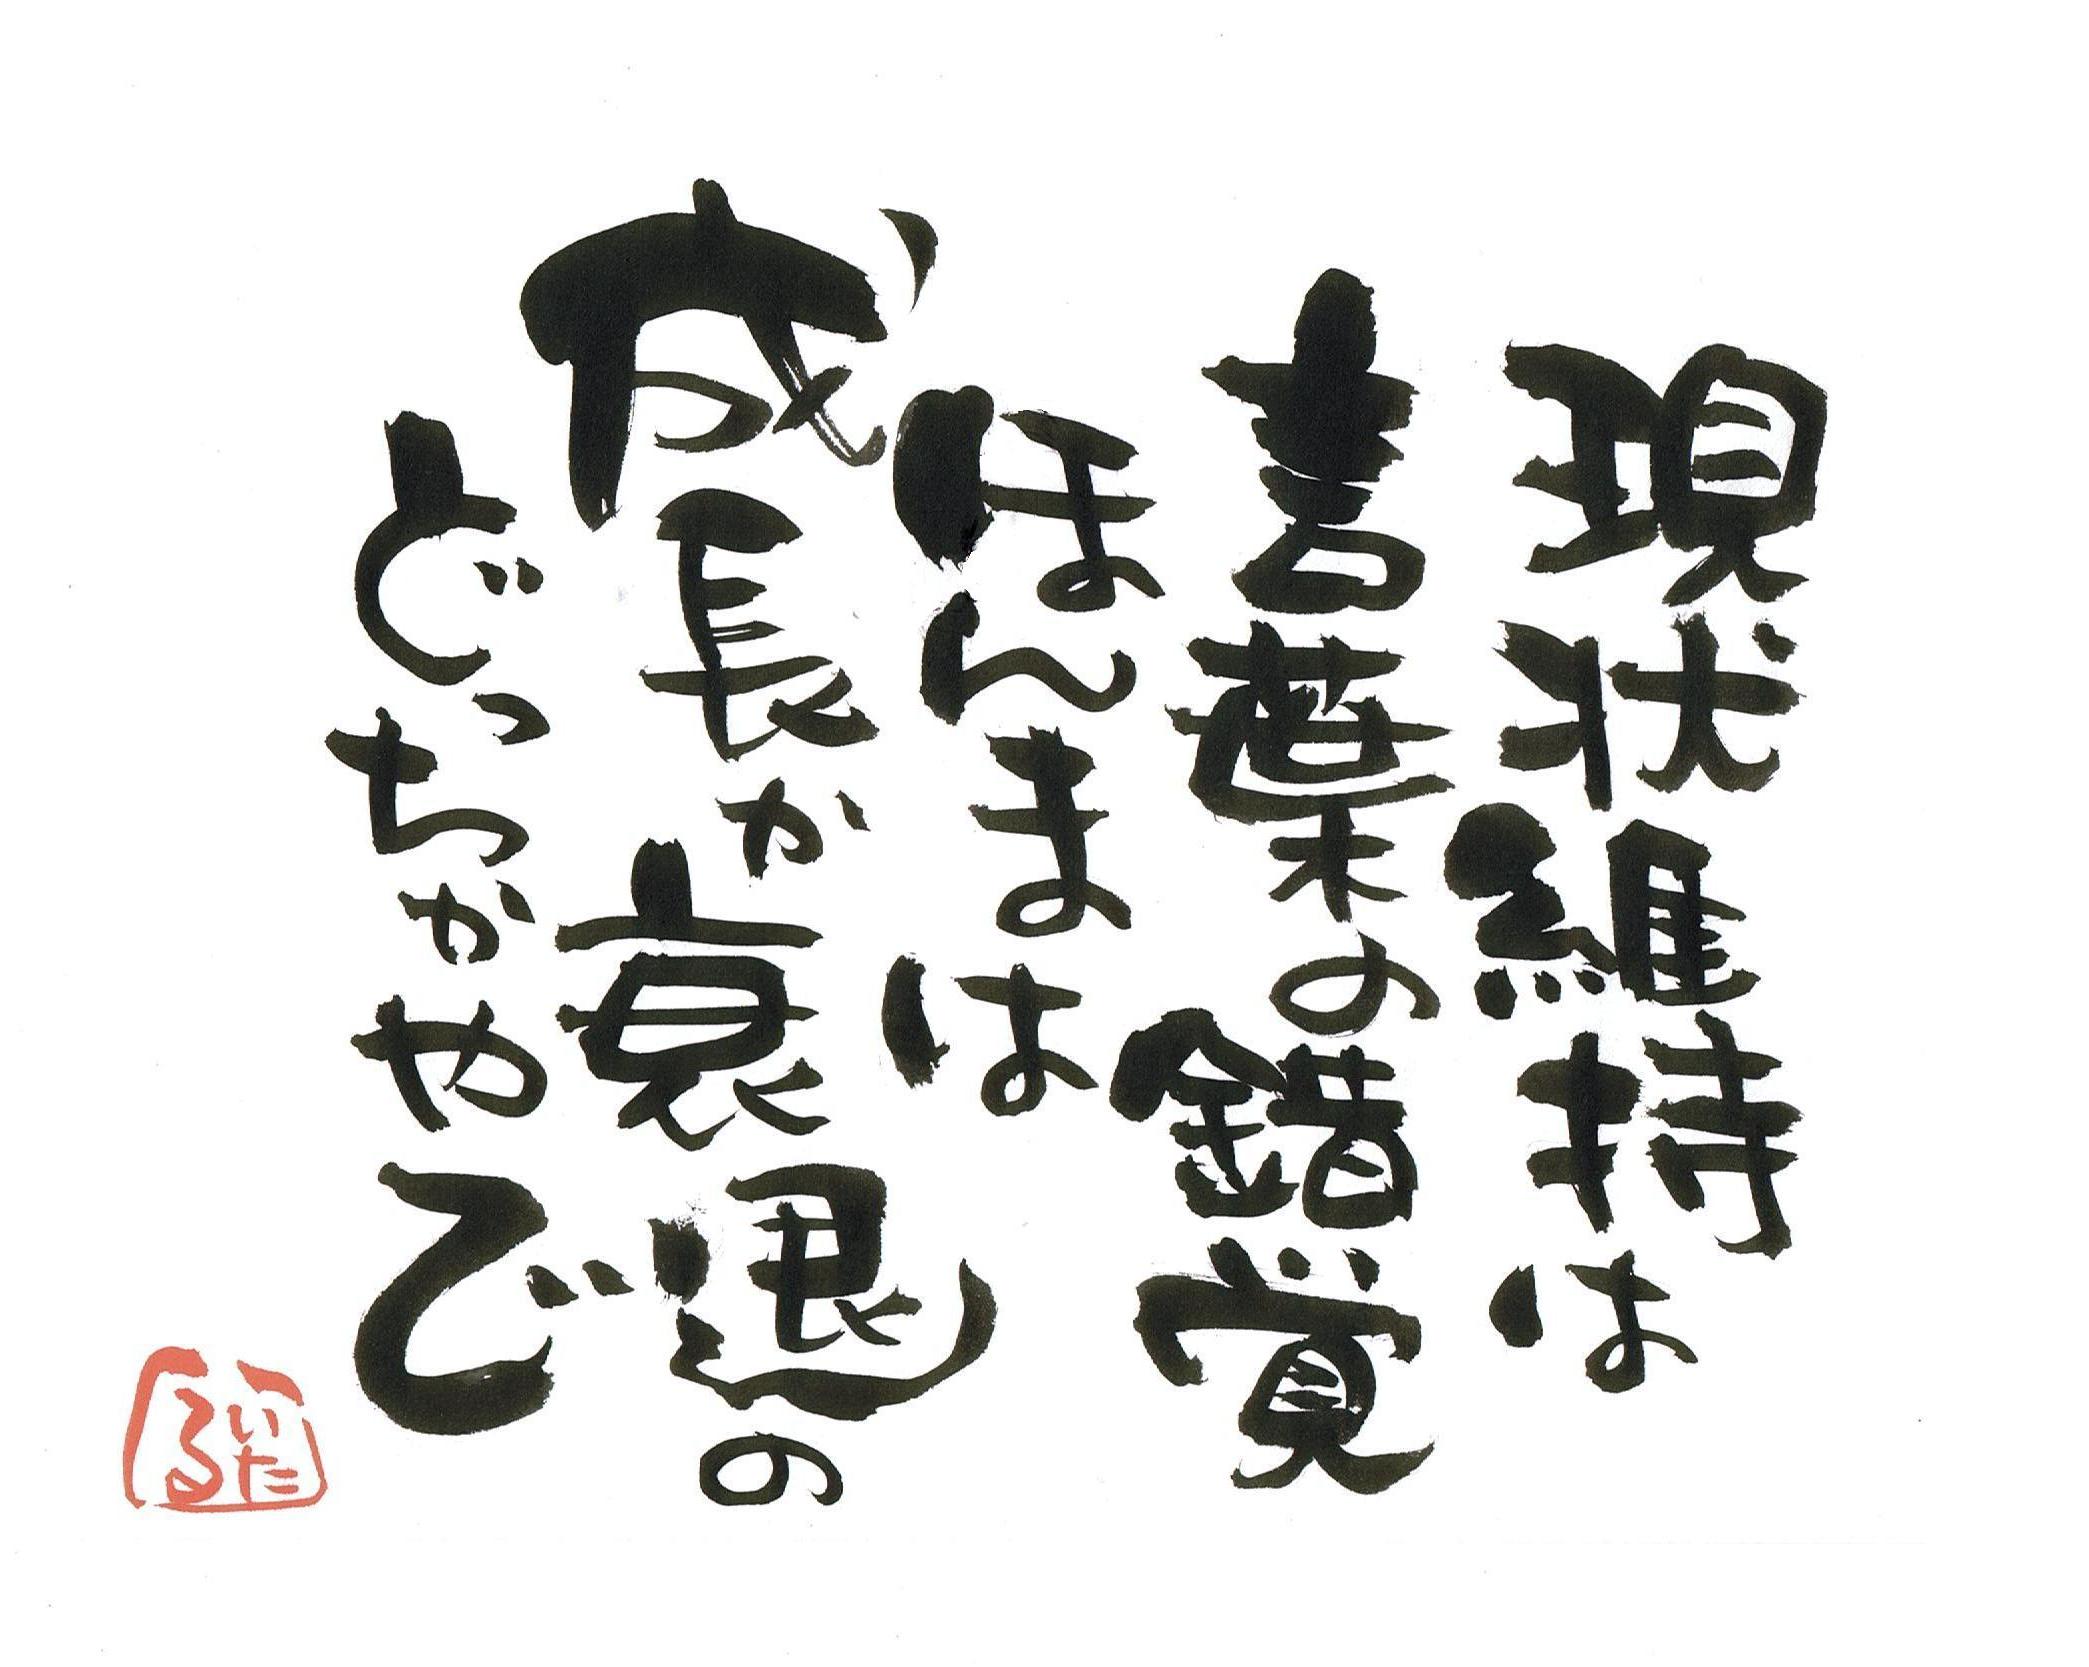 現状維持は
言葉の錯覚
ほんまは
成長か衰退の
どっちかやで
いた
る